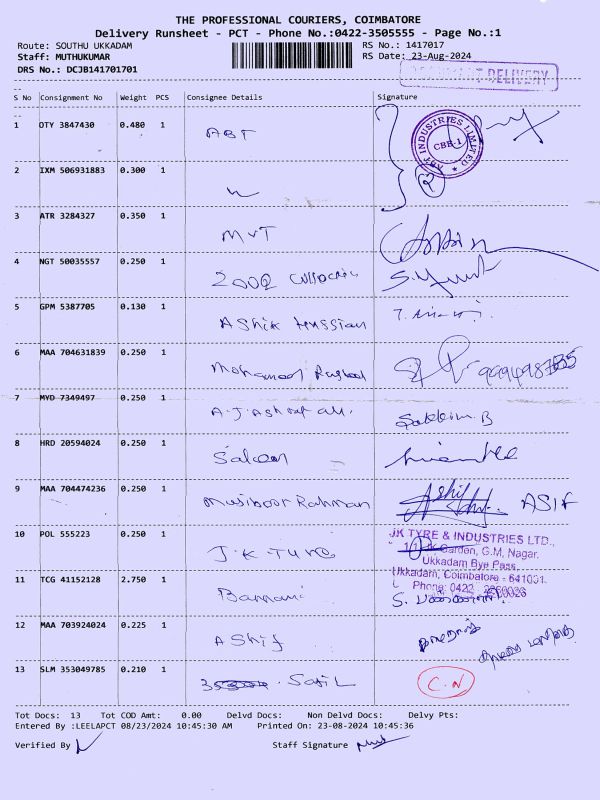 THE PROFESSIONAL COURIERS, COIMBATORE
Delivery Runsheet - PCT - Phone No.:0422-3505555 - Page No.:1
Route: SOUTHU UKKADAM RS No.: 1417017
Staff: MUTHUKUMAR RS Date: 23-Aug-2024
DRS No.: DCJB141701701
DELIVERY
--
S No Consignment No Weight PCS Consignee Details Signature
--
1 OTY 3847430 0.480 1 ABT
ABT INDUSTRIES LIMITED
CBE-1
2 IXM 506931883 0.300 1
3 ATR 3284327 0.350 1 MVT
4 NGT 50035557 0.250 1 2000
5 GPM 5387705 0.130 1 Ashik Hussian
6 MAA 704631839 0.250 1 Mohamood
7 MYD 7349497 0.250 1 A.J. Ashraf Ali.
8 HRD 20594024 0.250 1 Saleem
9 MAA 704474236 0.250 1 Musiboor Rahman ASIF
10 POL 555223 0.250 1 J.K Tyre
JK TYRE & INDUSTRIES LTD.,
Garden, G.M. Nagar,
Ukkadam Bye Pass,
Ukkadam, Coimbatore - 641001.
Phone: 0422
11 TCG 41152128 2.750 1 Bannari
12 MAA 703924024 0.225 1 Ashif
13 SLM 353049785 0.210 1 C.N
Tot Docs: 13 Tot COD Amt: 0.00 Delvd Docs: Non Delvd Docs: Delvy Pts:
Entered By :LEELAPCT 08/23/2024 10:45:30 AM Printed On: 23-08-2024 10:45:36
Verified By Staff Signature